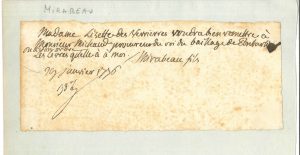 MIRABEAU
Madame Lisette des Verrieres voudra bien remettre à
Monsieur Michaud procureur du roi du bailliage de
ou à son ordre
Les livres quelle a à moi Mirabeau fils
janvier 1776